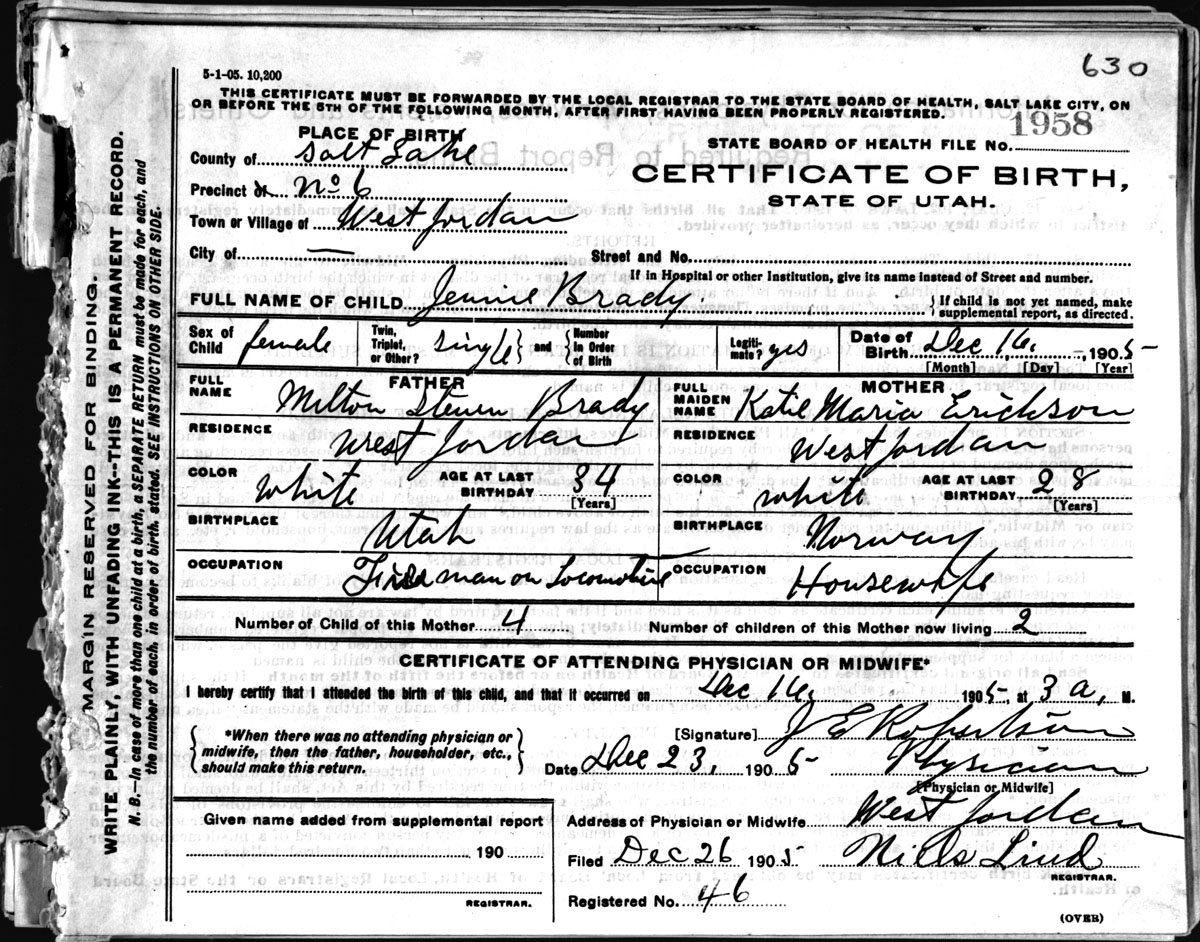 630
5-1-05. 10,200
THIS CERTIFICATE MUST BE FORWARDED BY THE LOCAL REGISTRAR TO THE STATE BOARD OF HEALTH, SALT LAKE CITY, ON
OR BEFORE THE 5TH OF THE FOLLOWING MONTH, AFTER FIRST HAVING BEEN PROPERLY REGISTERED.
PLACE OF BIRTH
1958
STATE BOARD OF HEALTH FILE NO.
County of Salt Lake
CERTIFICATE OF BIRTH,
Precinct of No 6
STATE OF UTAH.
Town or Village of West Jordan
City of — Street and No.
If in Hospital or other Institution, give its name instead of Street and number.
FULL NAME OF CHILD Jennie Brady } If child is not yet named, make supplemental report, as directed.
Sex of Child female Twin, Triplet, or Other? single { and } { Number in Order of Birth Legiti- mate? yes Date of Birth Dec 16, 1905
[Month] [Day] [Year]
FATHER MOTHER
FULL NAME Milton Steven Brady FULL MAIDEN NAME Katie Maria Erickson
RESIDENCE West Jordan RESIDENCE West Jordan
COLOR white AGE AT LAST BIRTHDAY 34 [Years] COLOR white AGE AT LAST BIRTHDAY 28 [Years]
BIRTHPLACE Utah BIRTHPLACE Norway
OCCUPATION Fireman on Locomotive OCCUPATION Housewife
Number of Child of this Mother 4 Number of children of this Mother now living 2
CERTIFICATE OF ATTENDING PHYSICIAN OR MIDWIFE*
I hereby certify that I attended the birth of this child, and that it occurred on Dec 16, 1905, at 3 a, M.
{ *When there was no attending physician or midwife, then the father, householder, etc., should make this return. }
[Signature] J E Robertson
Date Dec 23, 1905 Physician
[Physician or Midwife]
Given name added from supplemental report
Address of Physician or Midwife West Jordan
190
Filed Dec 26 1905 Nills Lind
REGISTRAR.
REGISTRAR.
Registered No. 46
(OVER)
MARGIN RESERVED FOR BINDING.
WRITE PLAINLY, WITH UNFADING INK--THIS IS A PERMANENT RECORD.
N. B.—In case of more than one child at a birth, a SEPARATE RETURN must be made for each, and
the number of each, in order of birth, stated. SEE INSTRUCTIONS ON OTHER SIDE.